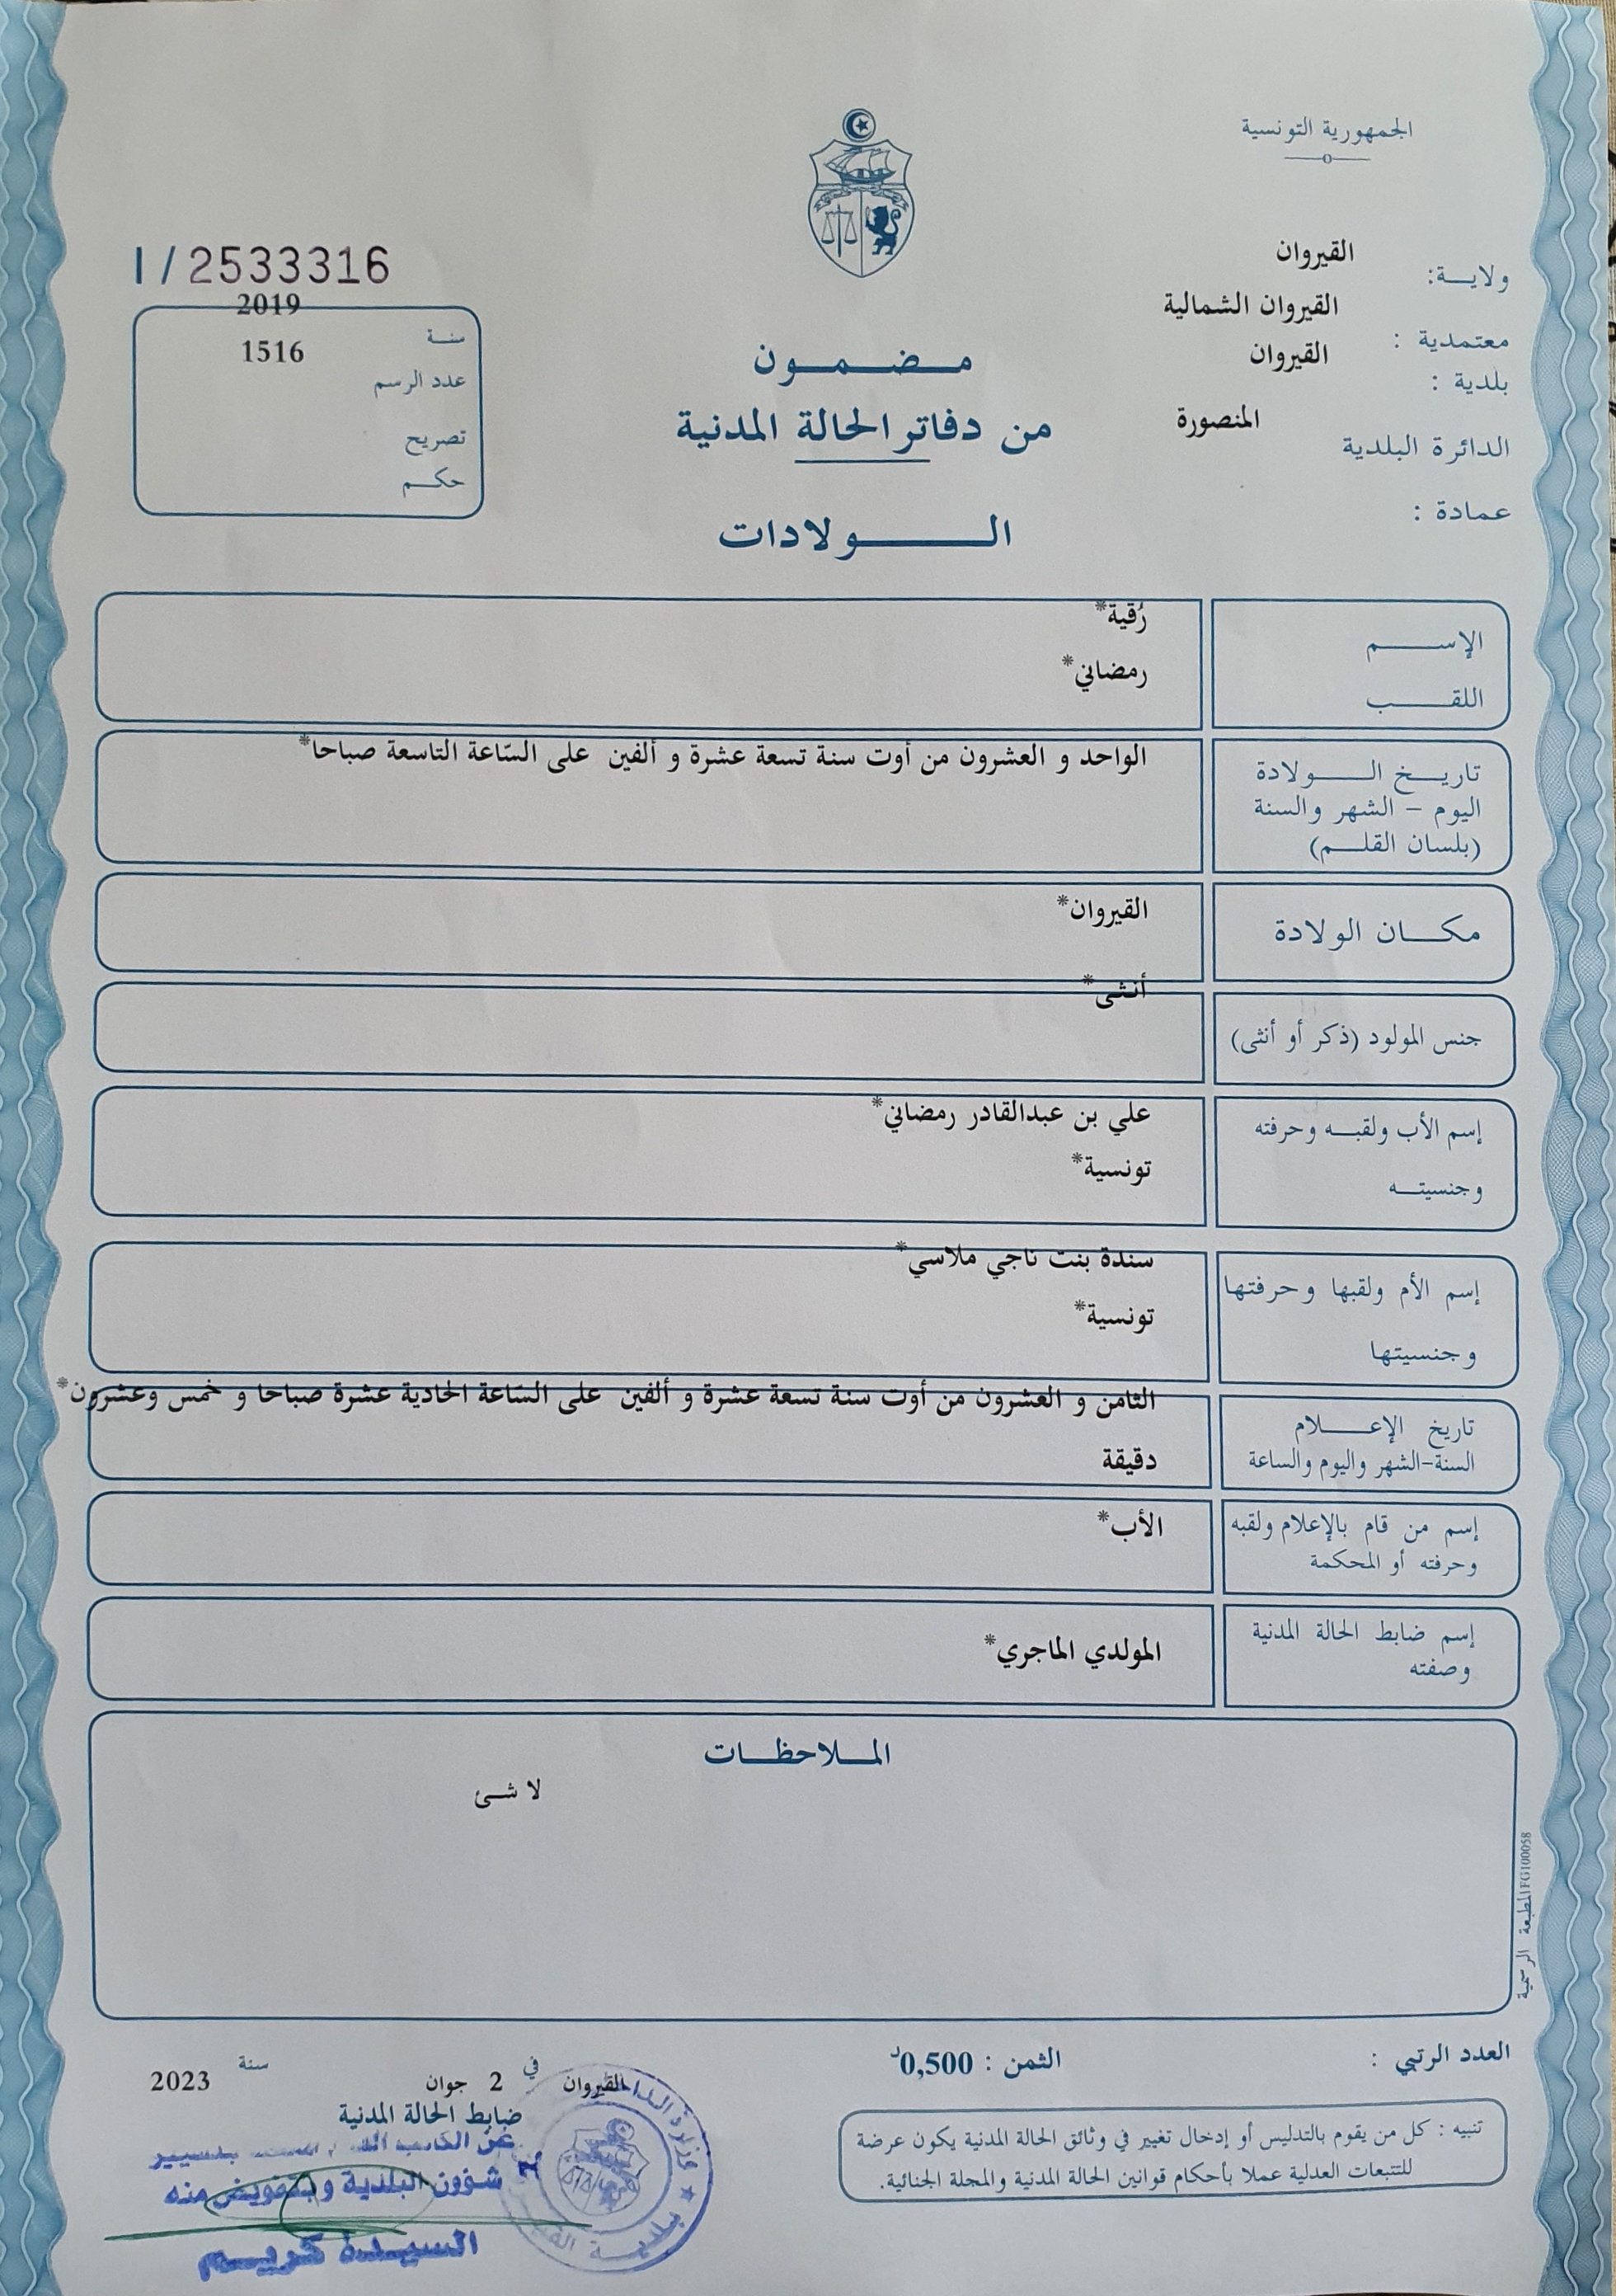 الجمهورية التونسية
ولاية: القيروان
معتمدية : القيروان الشمالية
بلدية : القيروان
الدائرة البلدية المنصورة
عمادة :
I/2533316
سنة 2019
عدد الرسم 1516
تصريح
حكم
مضمون
من دفاتر الحالة المدنية
الولادات
الإسم رُقية*
اللقب رمضاني*
تاريخ الولادة
اليوم – الشهر والسنة
(بلسان القلم)
الواحد و العشرون من أوت سنة تسعة عشرة و ألفين على السّاعة التاسعة صباحا*
مكان الولادة
القيروان*
جنس المولود (ذكر أو أنثى)
أنثى*
إسم الأب ولقبه وحرفته
وجنسيته
علي بن عبدالقادر رمضاني*
تونسية*
إسم الأم ولقبها وحرفتها
وجنسيتها
سندة بنت ناجي ملاسي*
تونسية*
تاريخ الإعلام
السنة-الشهر واليوم والساعة
الثامن و العشرون من أوت سنة تسعة عشرة و ألفين على السّاعة الحادية عشرة صباحا و خمس وعشرون*
دقيقة
إسم من قام بالإعلام ولقبه
وحرفته أو المحكمة
الأب*
إسم ضابط الحالة المدنية
وصفته
المولدي الماجري*
الملاحظات
لا شئ
المطبعة الرسمية FG100058
العدد الرتبي :
الثمن : 0,500د
القيروان في 2 جوان سنة 2023
ضابط الحالة المدنية
عن الكاتب بتسيير
شؤون البلدية وبتفويض منه
السيدة كريم
بلدية
تنبيه : كل من يقوم بالتدليس أو إدخال تغيير في وثائق الحالة المدنية يكون عرضة
للتتبعات العدلية عملا بأحكام قوانين الحالة المدنية والمجلة الجنائية.